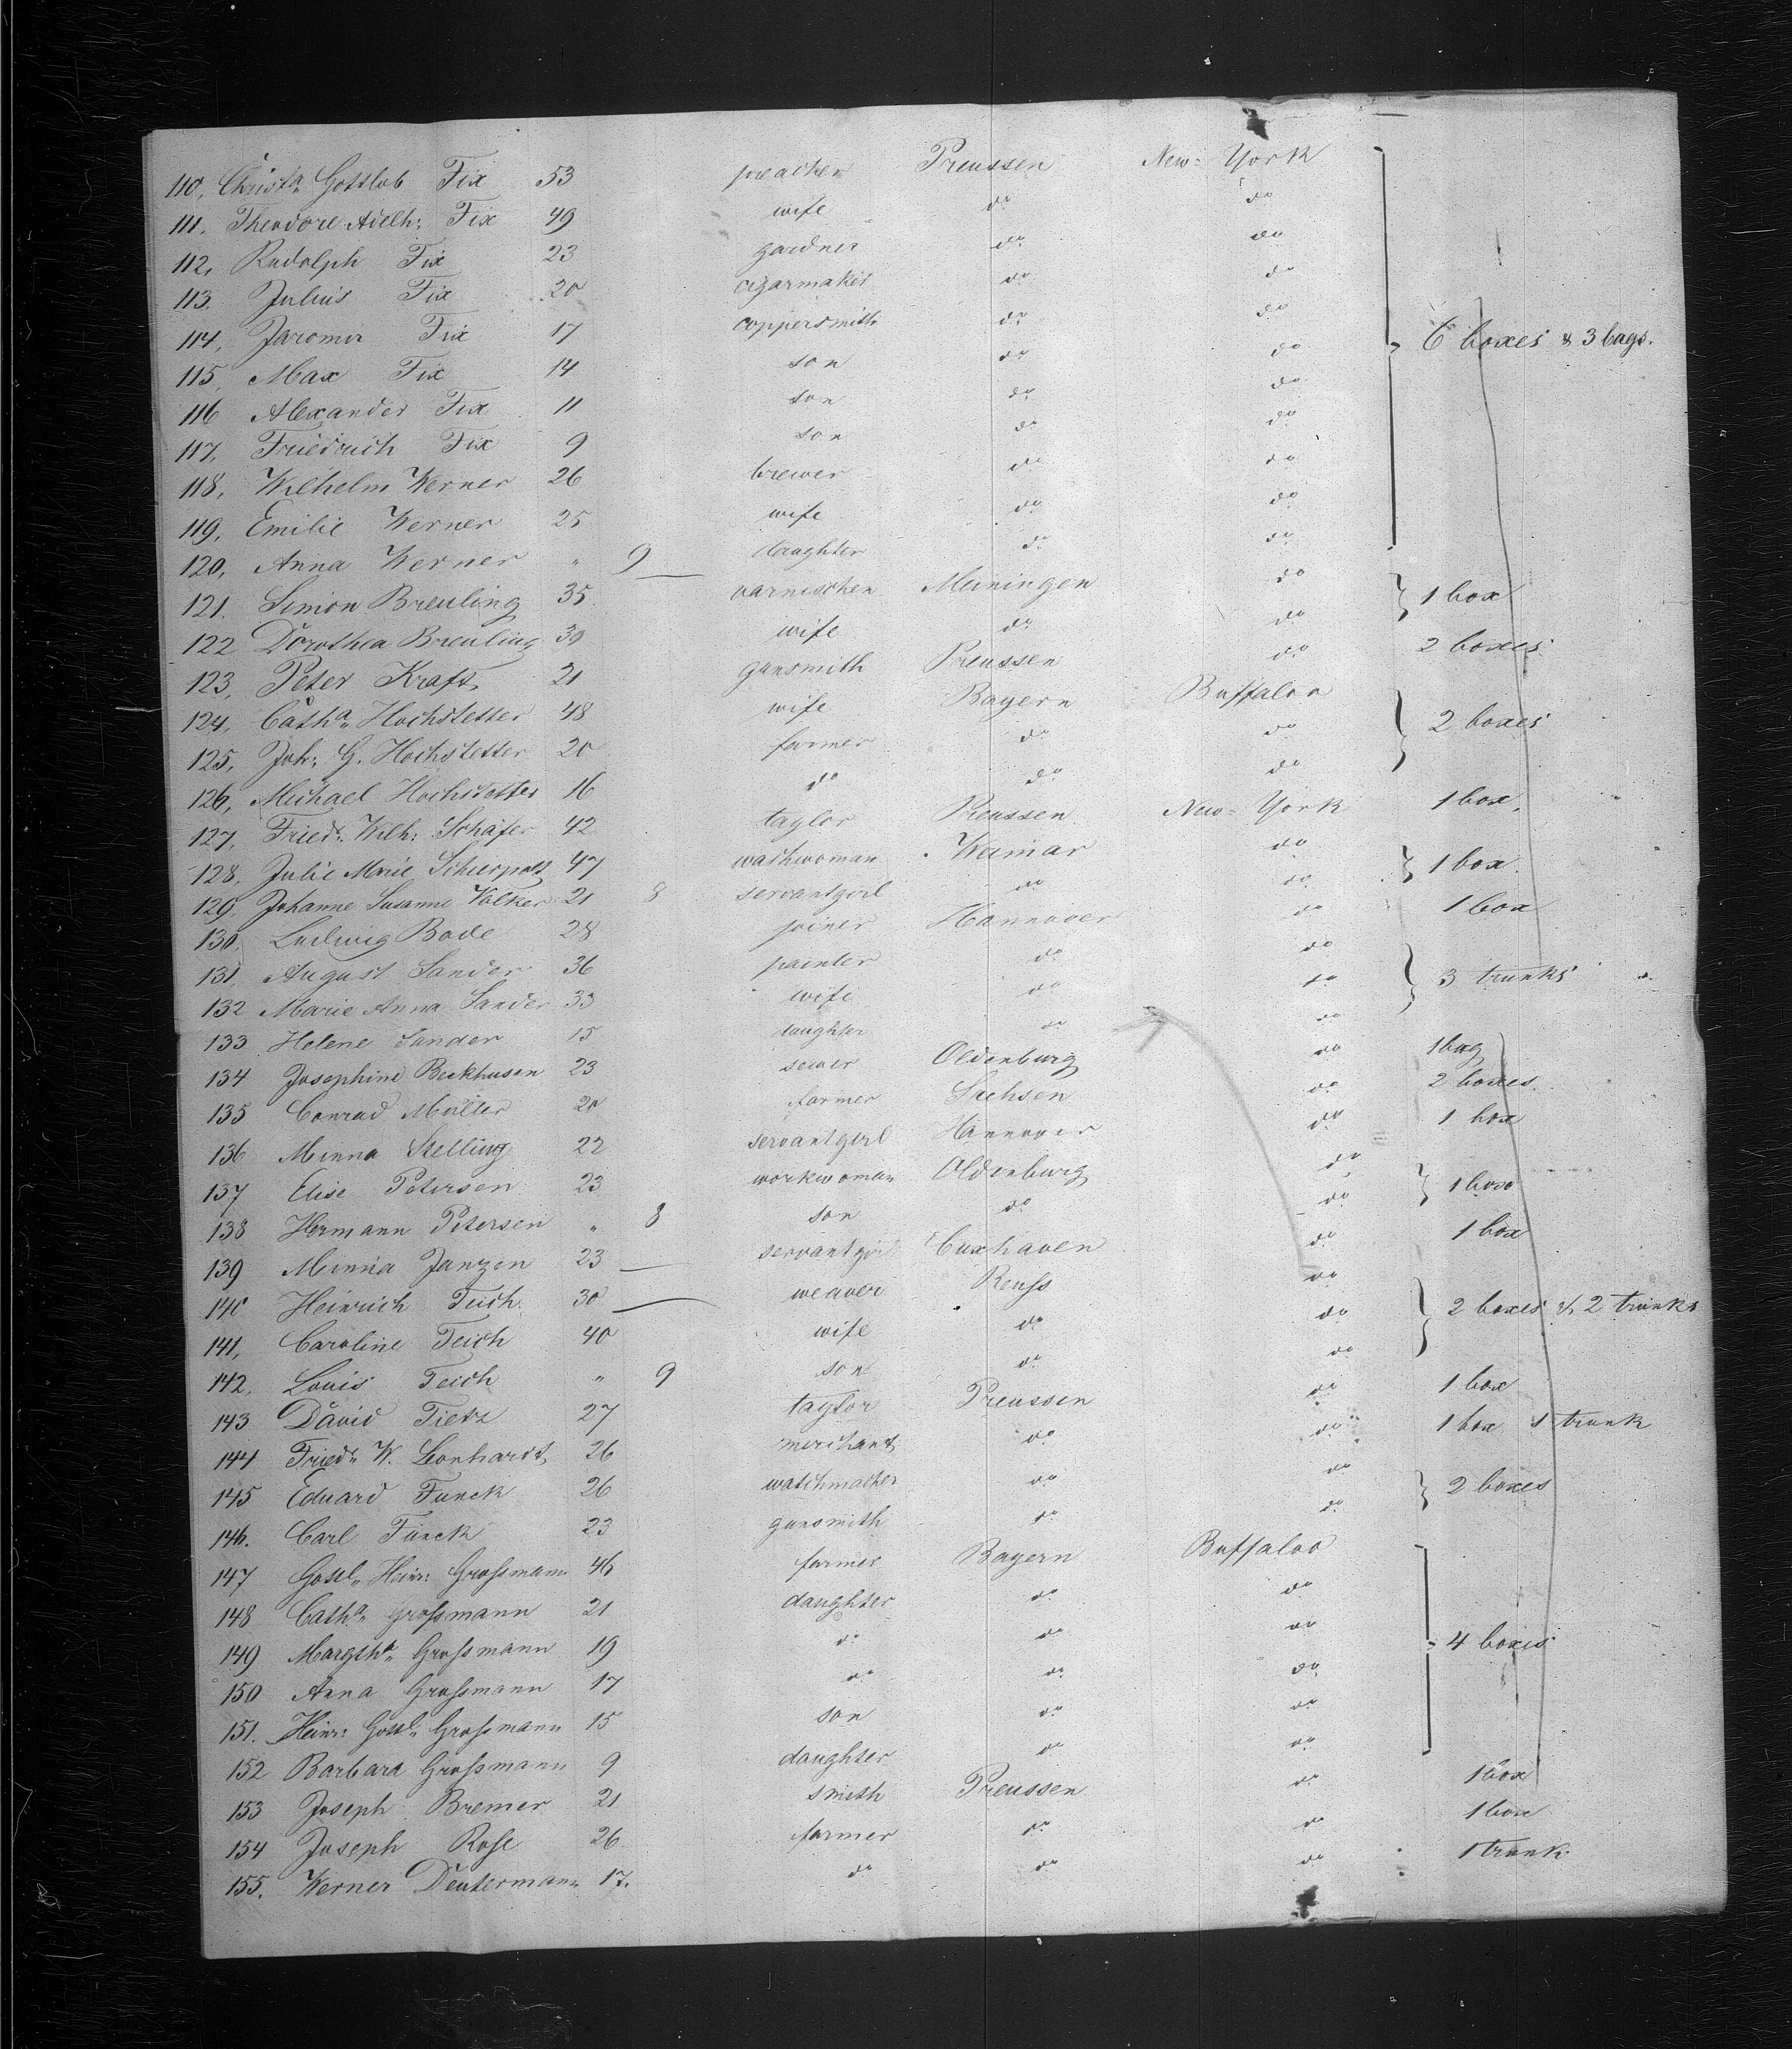 110, Christn. Gottlob Fix 53 preacher Preussen New-York
111. Theodore Adelh: Fix 49 wife do do
112, Rudolph Fix 23 gardner do do
113. Julius Fix 20 cigarmaker do do
114, Jaromir Fix 17 coppersmith do do
115, Max Fix 14 son do do 6 boxes & 3 bags.
116 Alexander Fix 11 son do do
117, Friedrich Fix 9 son do do
118, Wilhelm Werner 26 brewer do do
119, Emilie Werner 25 wife do do
120, Anna Werner " 9 daughter do do
121. Simon Breuling 35 varnischer Meiningen do 1 box
122 Dorothea Breuling 30 wife do do
123, Peter Kraft 21 gunsmith Preussen do 2 boxes
124, Catha. Hochstetter 48 wife Bayern Buffaloo
125, Joh: G. Hochstetter 20 farmer do do 2 boxes
126, Michael Hochstetter 16 do do do
127, Friedr. Wilh: Schäfer 42 taylor Preussen New-York 1 box.
128, Julie Marie 47 washwoman Weimar do 1 box.
129. Johanne Susanne Völker 21 8 servantgirl do do
130. Ludwig Bode 28 joiner Hannover do 1 box
131, August Sander 36 painter do do
132 Marie Anna Sander 33 wife do do 3 trunks
133 Helene Sander 15 daughter do do
134 Josephine Beckhusen 23 sewer Oldenburg do 1 bag
135 Conrad Müller 20 farmer Sachsen do 2 boxes.
136 Minna Stelling 22 servantgirl Hannover do 1 box
137 Elise Petersen 23 workwoman Oldenburg do 1 box
138 Hermann Petersen " 8 son do do
139 Minna Janzen 23 servantgirl Cuxhaven do 1 box
140 Heinrich Teich 30 weaver Reuss do
141, Caroline Teich 40 wife do do 2 boxes & 2 trunks
142, Louis Teich " 9 son do do
143 David Tietz 27 taylor Preussen do 1 box
144 Friedr. W. Leonhardt 26 merchant do do 1 box 1 trunk
145 Eduard Funck 26 watchmacher do do 2 boxes
146. Carl Funck 23 gunsmith do do
147 Gottl. Heinr: Grossmann 46 farmer Bayern Buffaloo
148 Catha. Grossmann 21 daughter do do
149 Margtha. Grossmann 19 do do do 4 boxes
150 Anna Grossmann 17 do do do
151. Heinr: Gottl. Grossmann 15 son do do
152 Barbara Grossmann 9 daughter do do
153 Joseph Bremer 21 smith Preussen do 1 box
154 Joseph Rose 26 farmer do do 1 box
155. Werner Deutermann 17. do do do 1 trunk